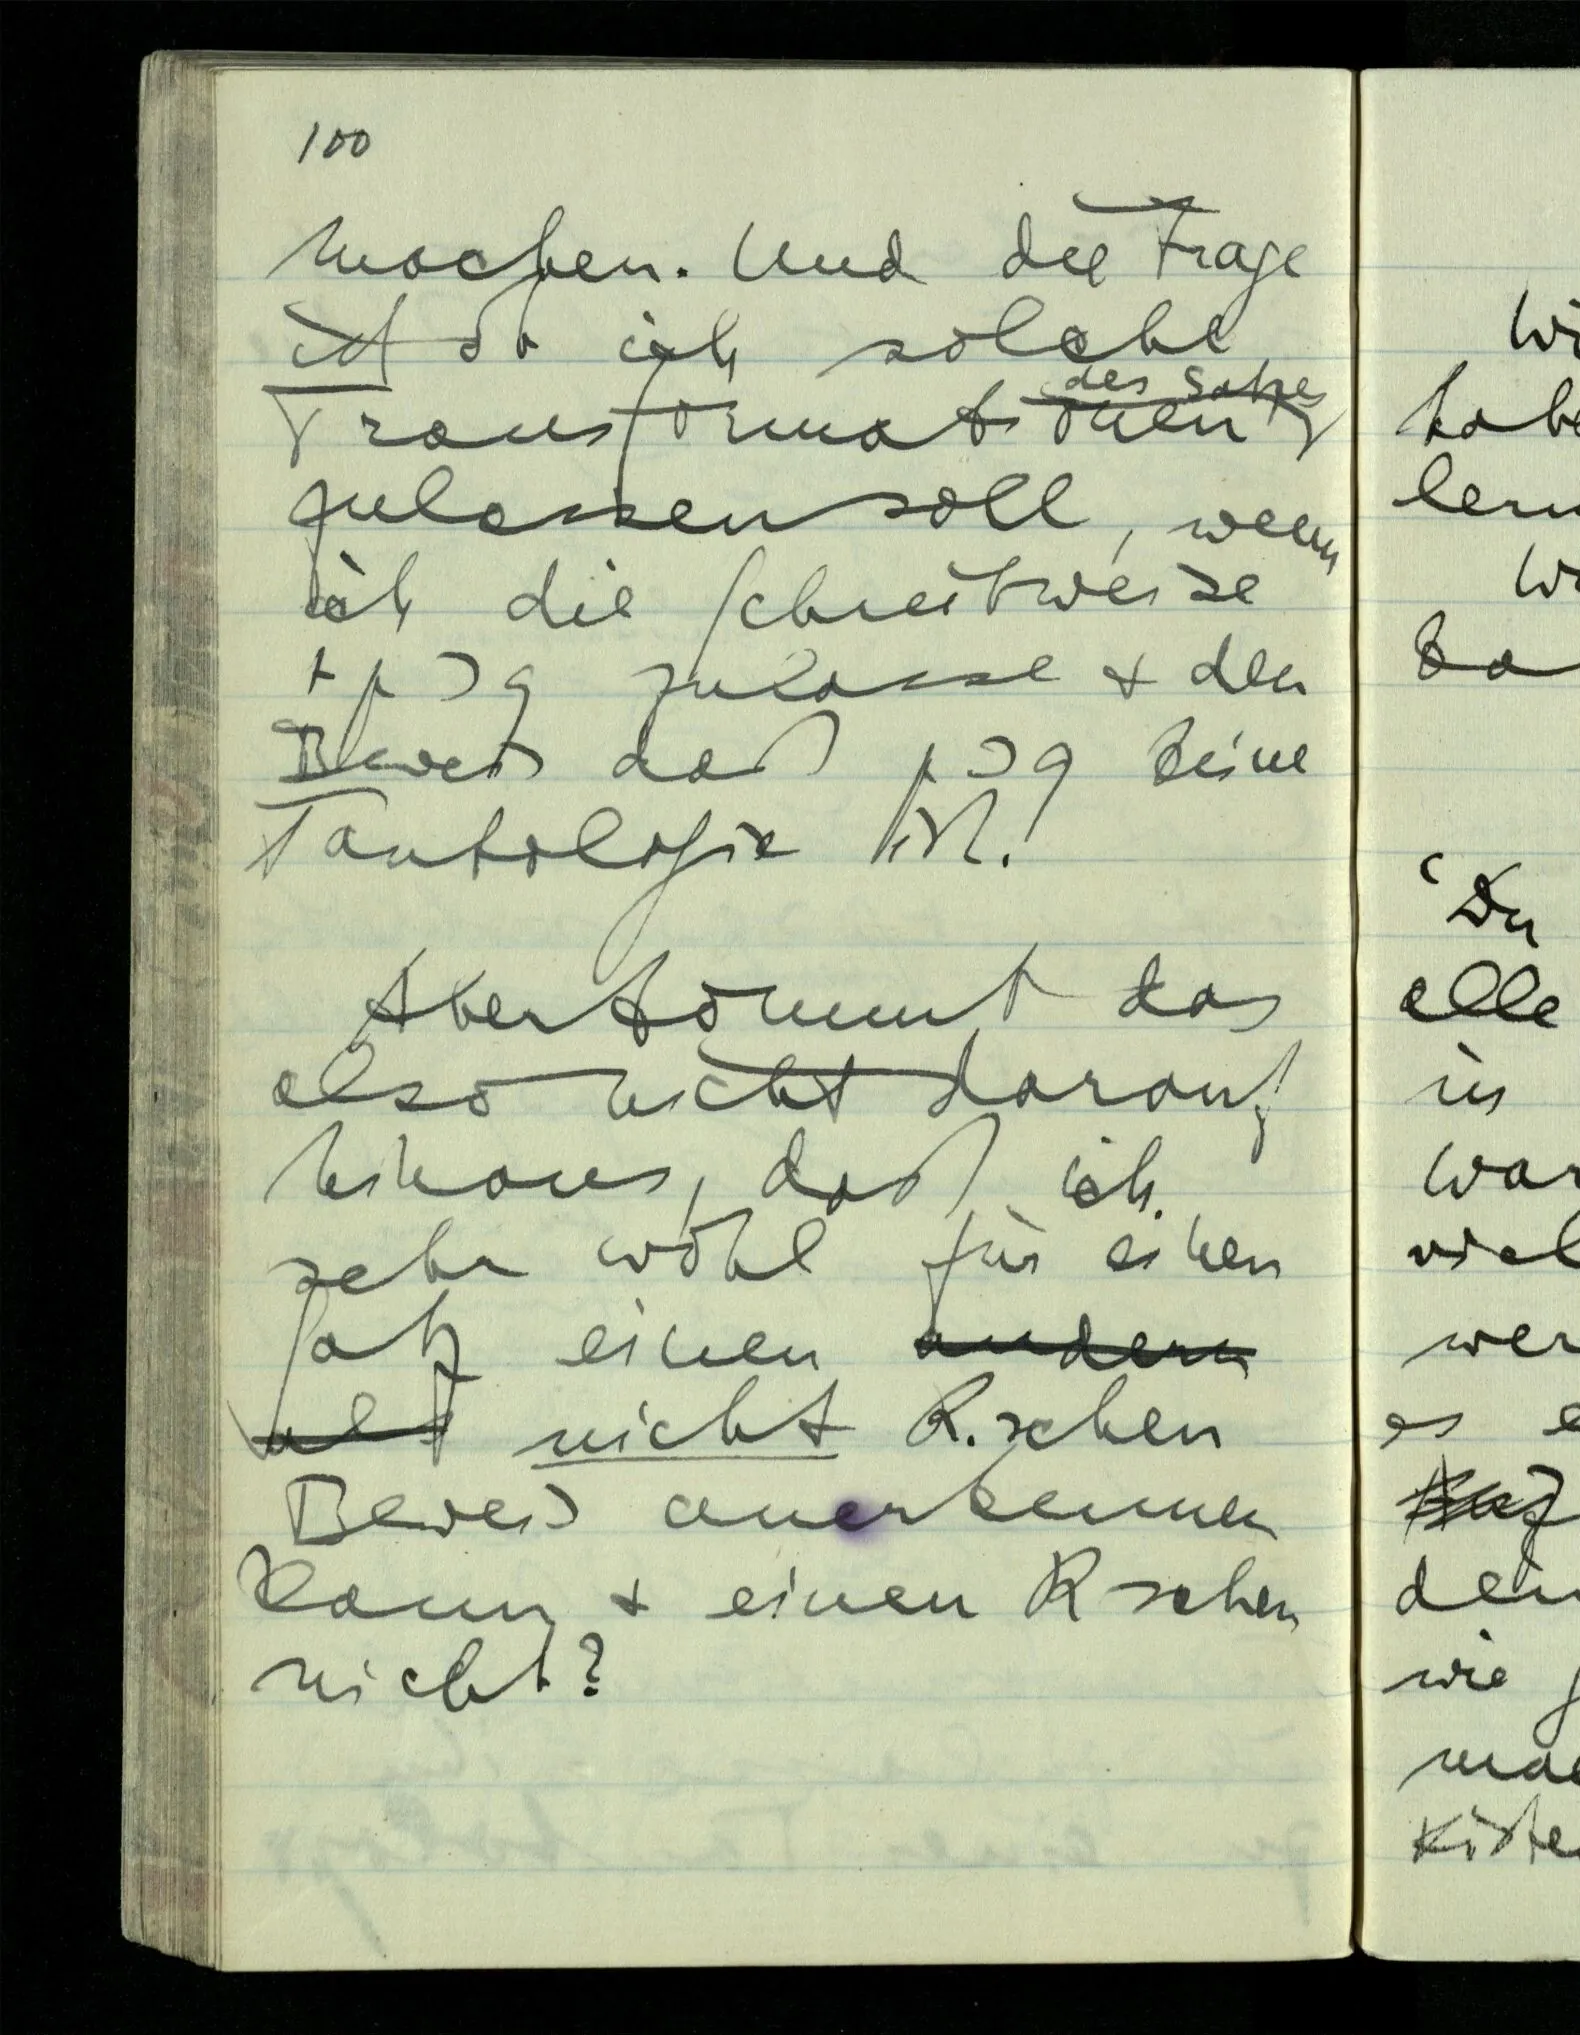 100
machen. Und die Frage
ist ob ich solche
des Satzes
Transformationen
zulassen soll, wenn
ich die Schreibweise
⊢p⊃q zulasse & den
Beweis daß p⊃q keine
Tautologie ist.
Aber kommt das
also nicht darauf
hinaus, daß ich
sehr wohl für einen
Satz einen andern
als nicht R.schen
Beweis anerkennen
kann & einen R schen
nicht?
Wi
habe
lern
ka
‘Du
alle
in
war
viel
wer
es e
den
wie g
mac
Kiste